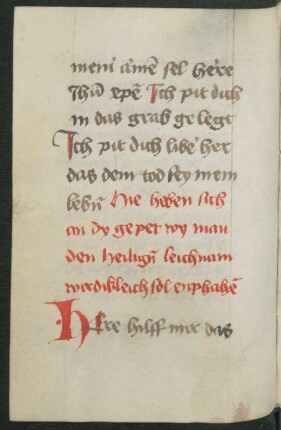 meni armē sel here
Jhū xpē Ich pit dich
in das grab gelegt
Ich pit dich libē her
das dein tod sey mein
lebñ Hie heben sich
an dy gepet wy man
den heiligñ leichnam
wirdikleich sol enphahē
Herre hilff mir das